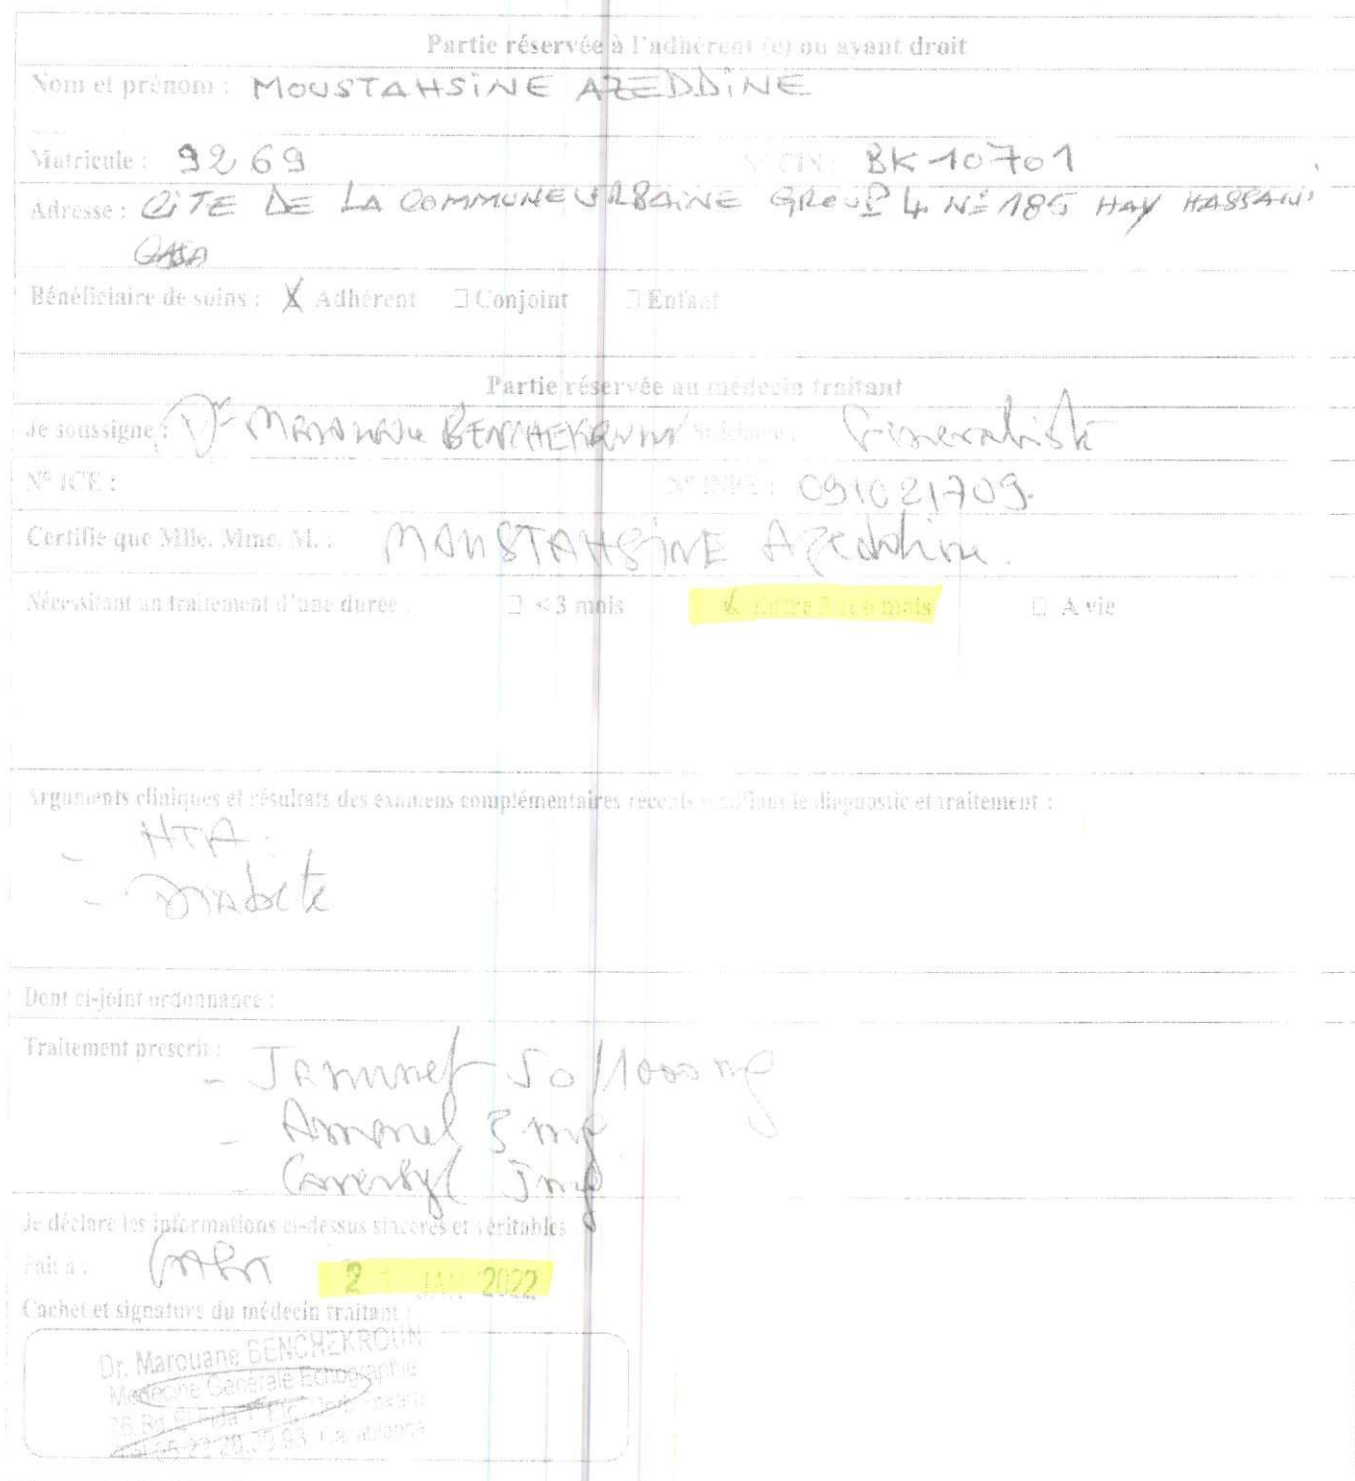 Partie réservée à l'adhérent (e) ou ayant droit
Nom et prénom : MOUSTAHSiNE AZEDDiNE
Matricule : 9269 N° CIN : BK 10701
Adresse : CiTE DE LA COMMUNE URBAiNE GROUP 4 N° 185 HAY HASSANi
CASA
Bénéficiaire de soins : X Adhérent □ Conjoint □ Enfant
Partie réservée au médecin traitant
Je soussigne : Dr MAROUANE BENCHEKROUN Spécialité : Generaliste
N° ICE : N° INPE : 091021709.
Certifie que Mlle. Mme. M. : MOUSTAHSiNE Azeddine.
Nécessitant un traitement d'une durée : □ < 3 mois Entre 3 et 6 mois □ A vie
Arguments cliniques et résultats des examens complémentaires récents justifiant le diagnostic et traitement :
- HTA.
- Diabete
Dont ci-joint ordonnance :
Traitement prescrit : - Janumet 50/1000 mg
- Amarel 3 mg
- Coversyl 5mg
Je déclare les informations ci-dessus sincères et véritables
Fait à : CASA 21 JAN 2022
Cachet et signature du médecin traitant :
Dr. Marouane BENCHEKROUN
Médecine Générale Echographie
Bd El Fida
Casablanca